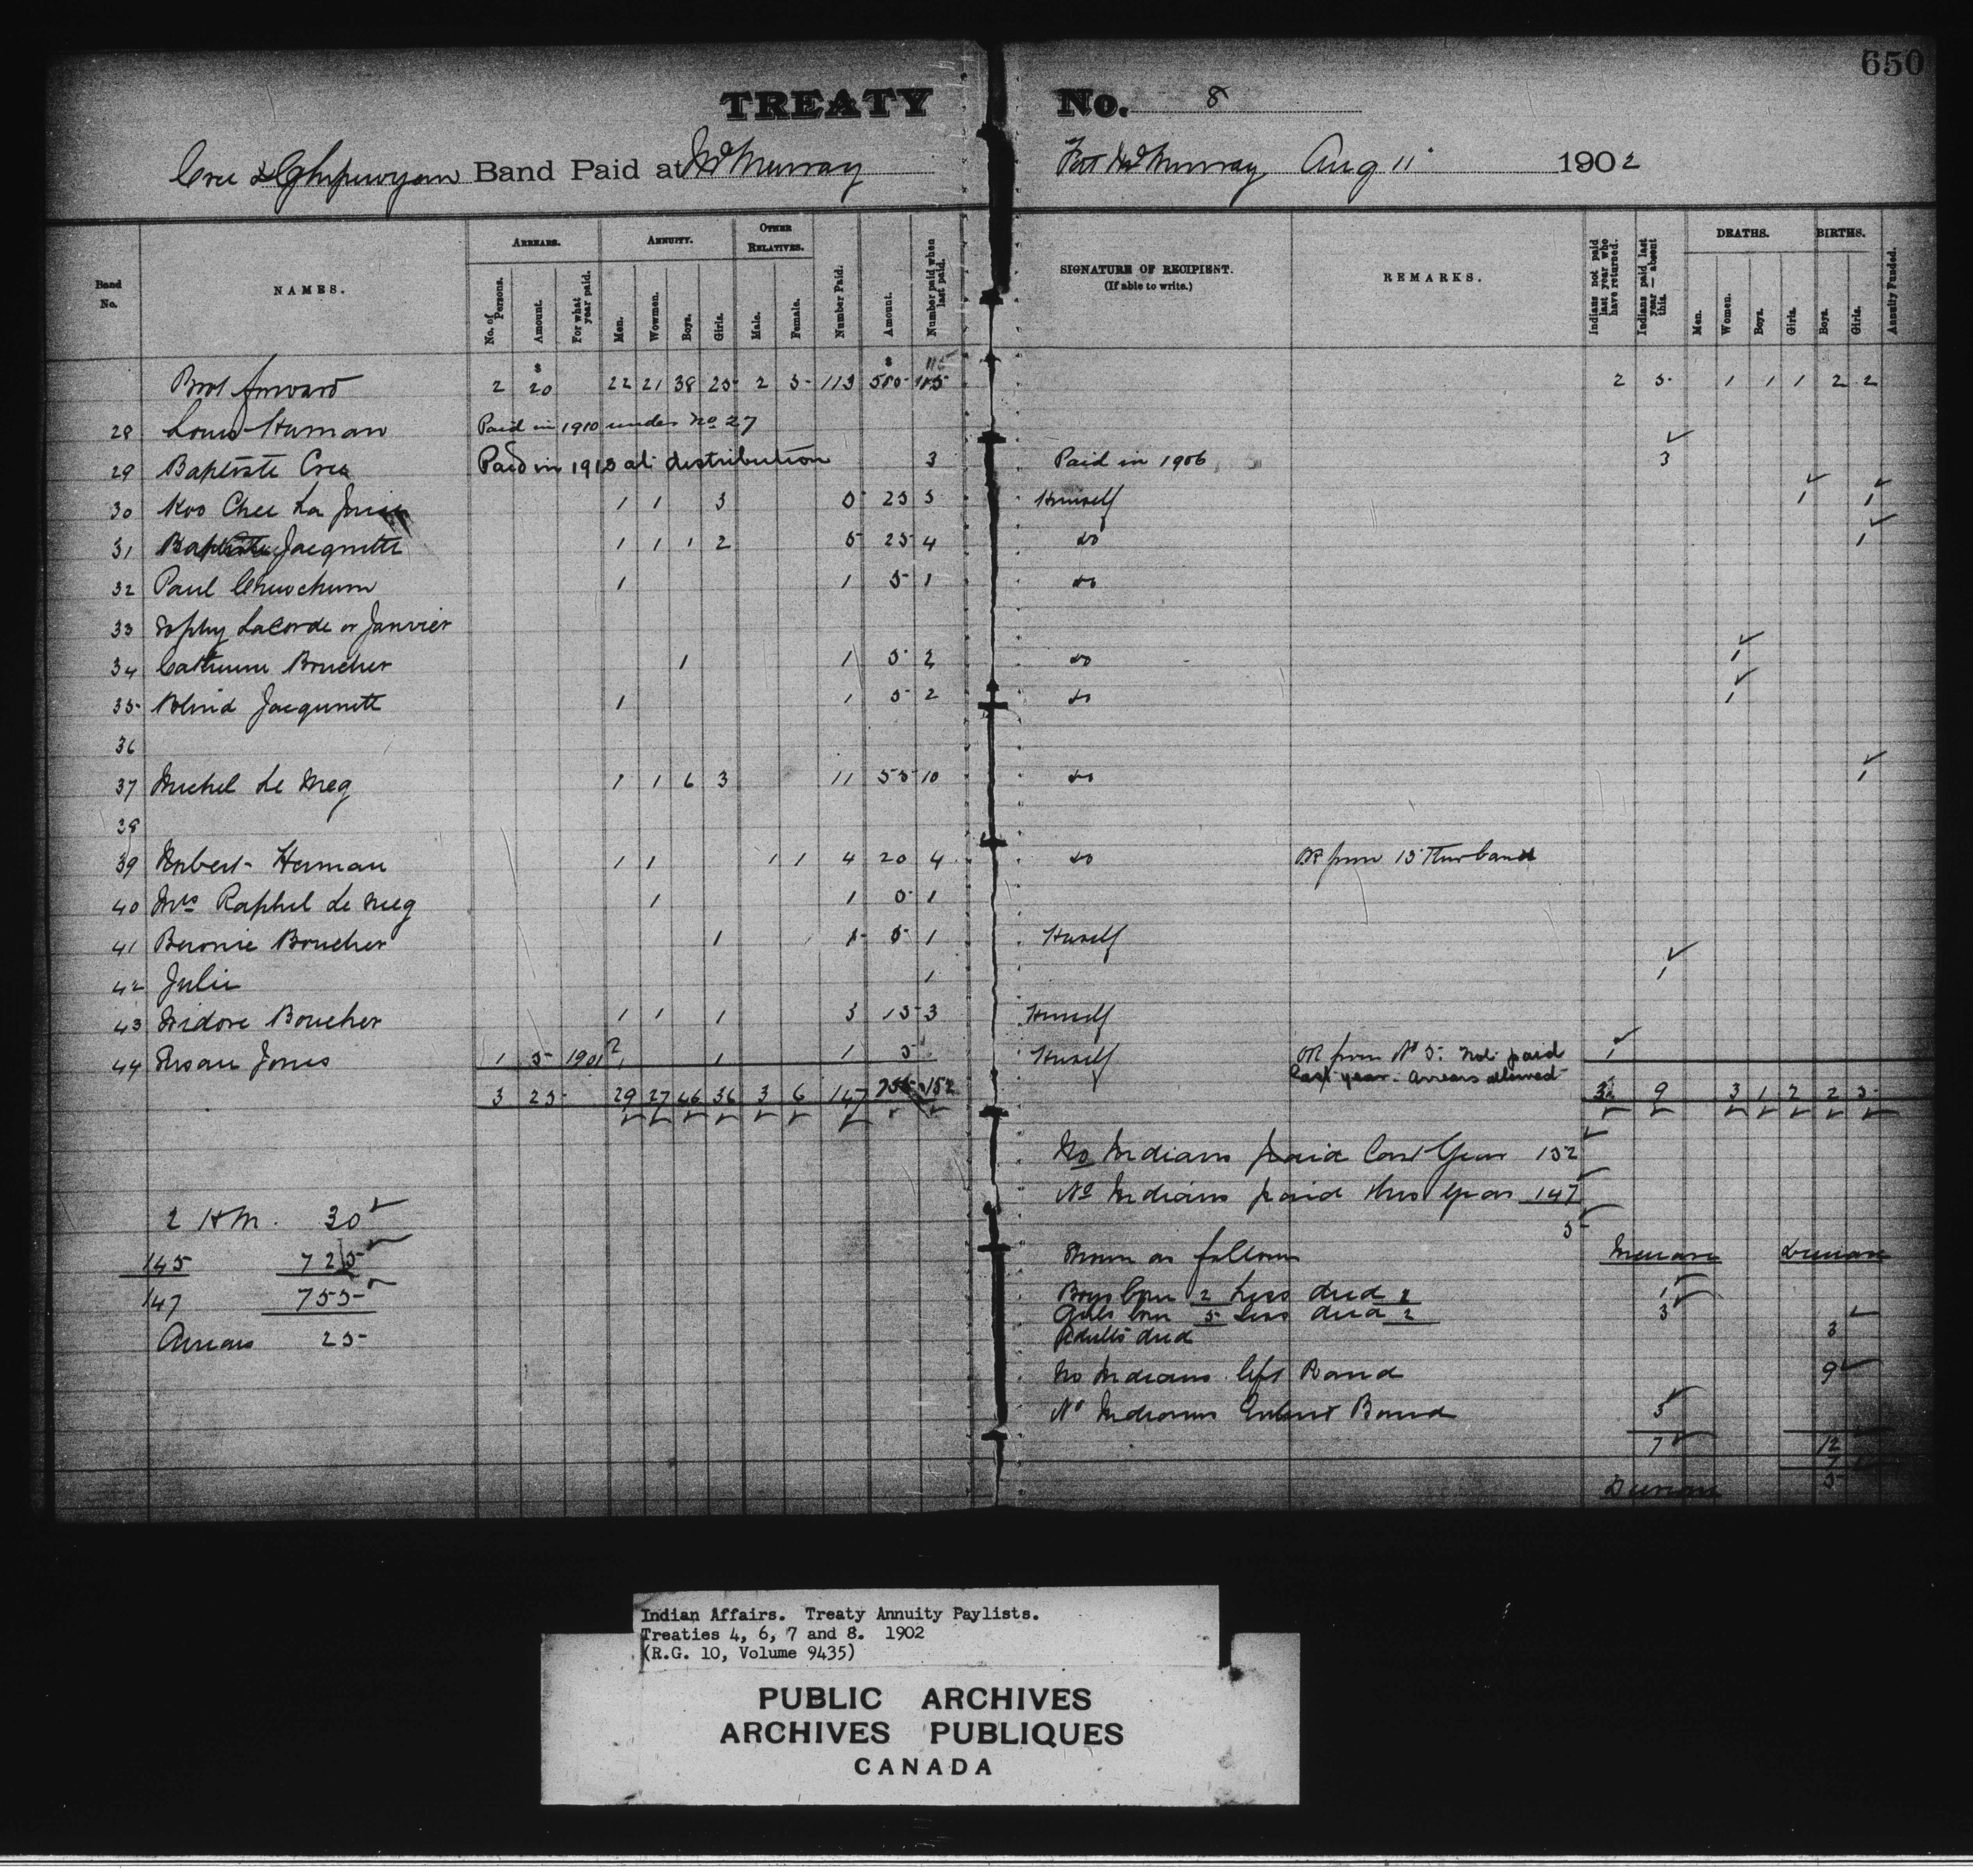 650
TREATY No. 8
Cree & Chipewyan Band Paid at McMurray Fort McMurray Aug 11 1902
Band No. NAMES. ARREARS. ANNUITY. OTHER RELATIVES. Number Paid. Amount. Number paid when last paid. SIGNATURE OF RECIPIENT. (If able to write.) REMARKS. Indians not paid last year who have returned. Indians paid last year—absent this. DEATHS. BIRTHS. Annuity Funded.
No. of Persons. Amount. For what year paid. Men. Wowmen. Boys. Girls. Male. Female. Men. Women. Boys. Girls. Boys. Girls.
$ $ 115
Brot forward 2 20 22 21 38 25 2 5 113 580 2 5 1 1 1 2 2
28 Louis Human Paid in 1910 under No 27
29 Baptiste Cree Paid in 1913 at distribution 3 Paid in 1906 3
30 Koo Chee La 1 1 3 5 25 5 Himself 1 1
31 Baptiste Jacquette 1 1 1 2 5 25 4 do 1
32 Paul 1 1 5 1 do
33 Sophy LaCorde or Janvier
34 Catherine Boucher 1 1 5 2 do 1
35 Blind Jacquette 1 1 5 2 do 1
36
37 Michel Le Meg 1 1 6 3 11 55 10 do 1
38
39 Robert Herman 1 1 1 1 4 20 4 do OR from 15 this band
40 Mrs Raphel Le Meg 1 1 5 1
41 Boucher 1 1 5 1 Herself
42 Julie 1 1
43 Isidore Boucher 1 1 1 3 15 3 Himself
44 Susan Jones 1 5 1901 1 1 5 Herself OR from No 5. Not paid 1
last year. Arrears allowed
3 25 29 27 46 36 3 6 147 755 152 3 9 3 1 2 2 5
No Indians paid last Year 152
No Indians paid this Year 147
5
2 H.M. 30
145 725
147 755
Arrears 25
Shown as follows Increase Decrease
Boys born 2 Less died 1
Girls born 5 Less died 2 3
Adults died 3
No Indians left Band 9
No Indians Entered Band 3
7 12
7
Decrease 5
Indian Affairs. Treaty Annuity Paylists.
Treaties 4, 6, 7 and 8. 1902
(R.G. 10, Volume 9435)
PUBLIC ARCHIVES
ARCHIVES PUBLIQUES
CANADA